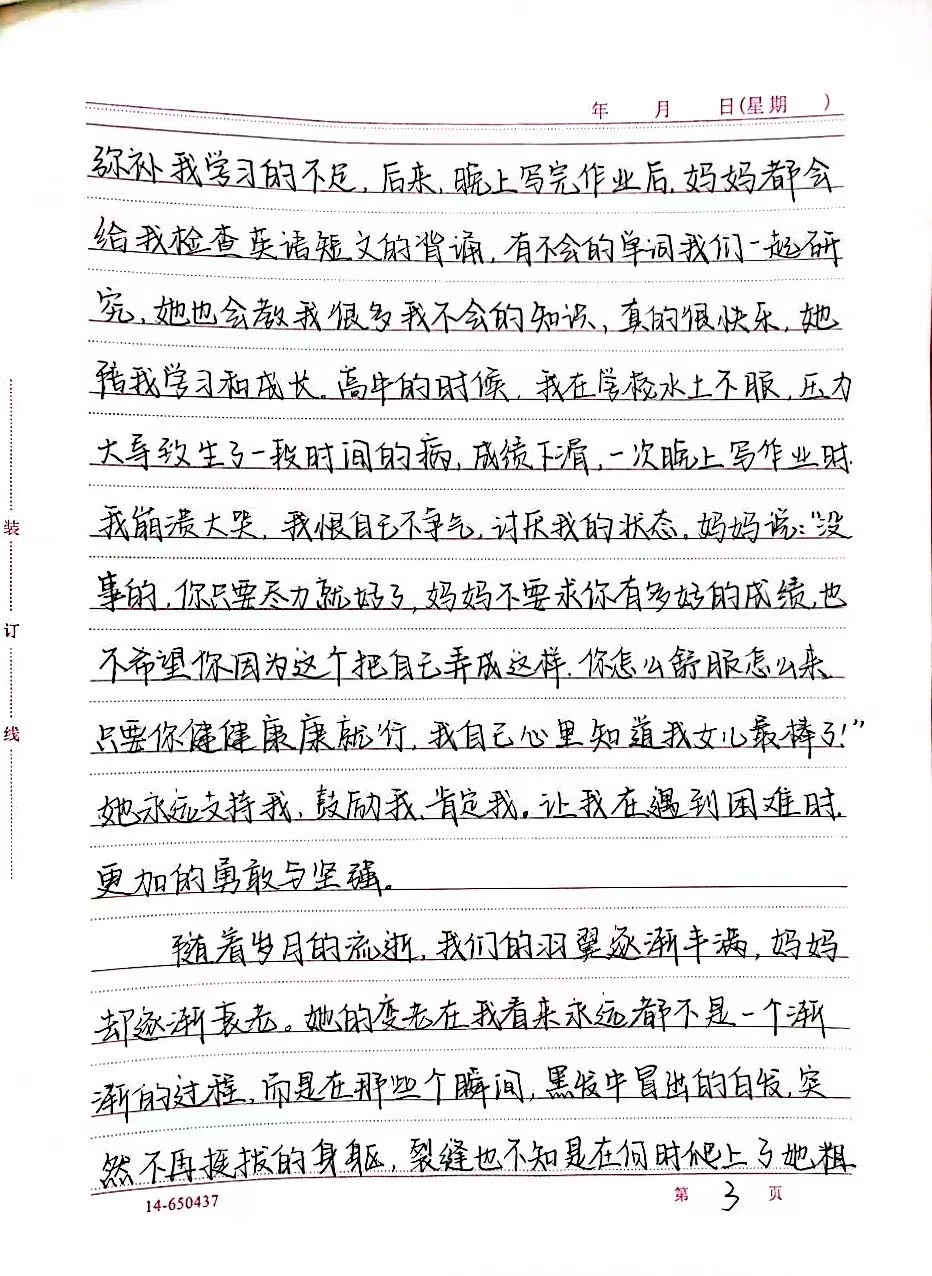 年 月 日(星期 )
弥补我学习的不足，后来，晚上写完作业后，妈妈都会
给我检查英语短文的背诵，有不会的单词我们一起研
究，她也会教我很多我不会的知识，真的很快乐，她
陪我学习和成长。高年的时候，我在学校水土不服，压力
大导致生了一段时间的病，成绩下滑，一次晚上写作业时，
我崩溃大哭，我恨自己不争气，讨厌我的状态。妈妈说："没
事的，你只要尽力就好了，妈妈不要求你有多好的成绩，也
不希望你因为这个把自己弄成这样，你怎么舒服怎么来，
只要你健健康康就行，我自己心里知道我女儿最棒了！"
她永远支持我，鼓励我，肯定我。让我在遇到困难时，
更加的勇敢与坚强。
随着岁月的流逝，我们的羽翼逐渐丰满，妈妈
却逐渐衰老。她的变老在我看来永远都不是一个渐
渐的过程，而是在那些个瞬间，黑发中冒出的白发，突
然不再挺拔的身躯，裂缝也不知是在何时爬上了她粗
14-650437
第 3 页
装
订
线